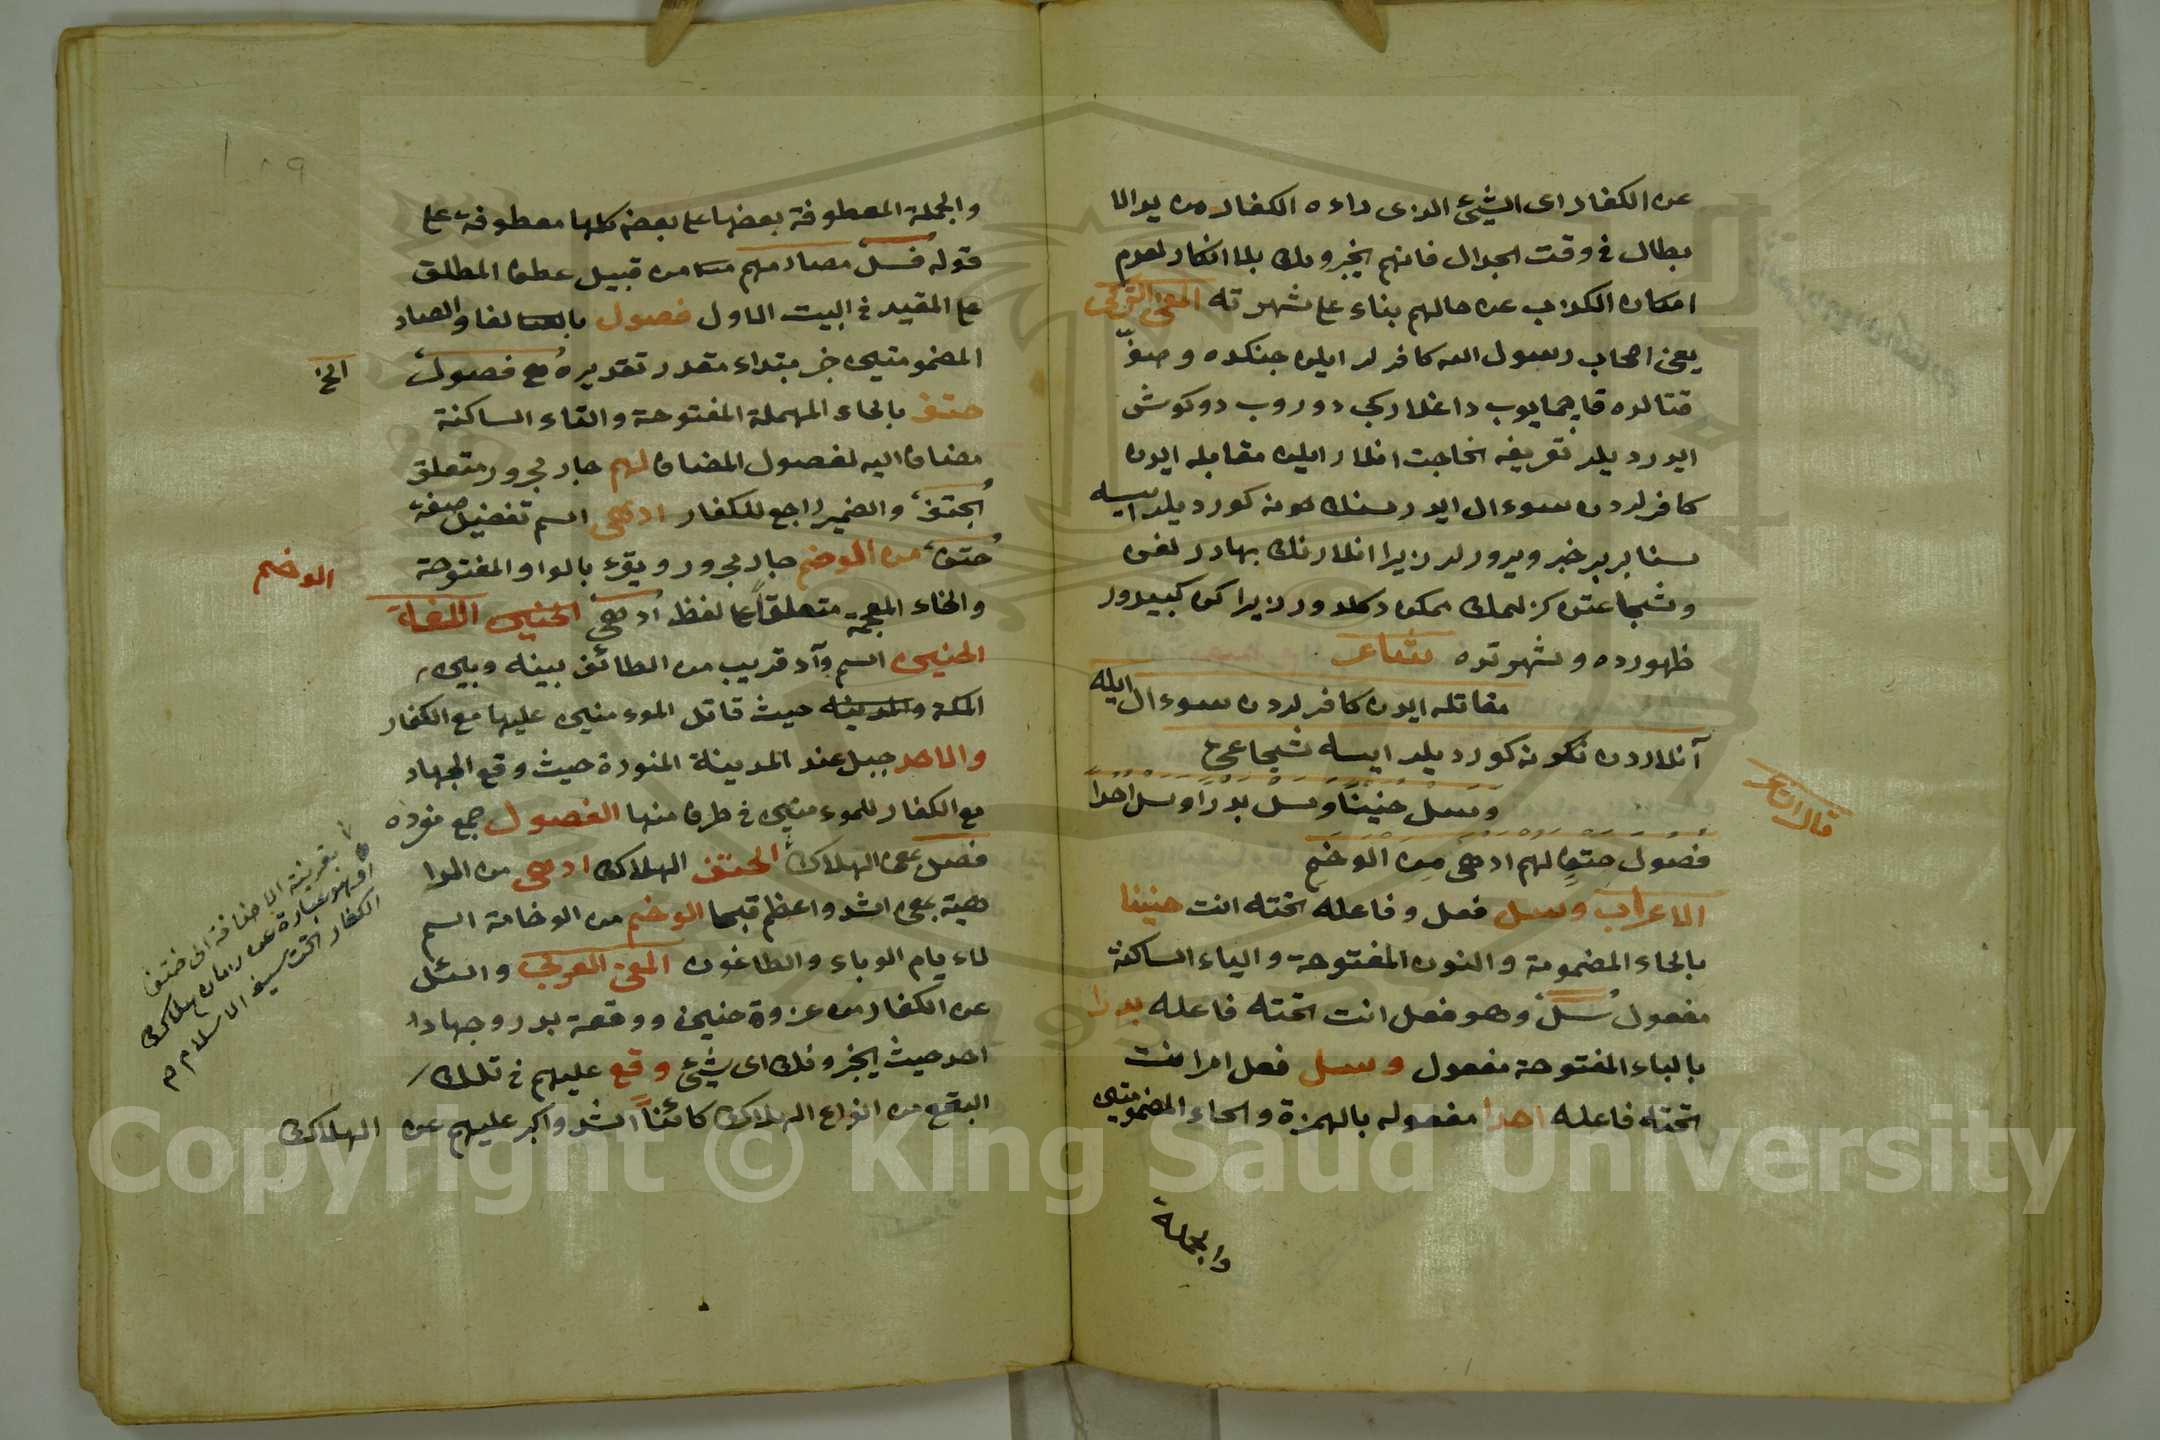 عن الكفار اى الشيئ الذى راءه الكفار من يد الا
بطال فى وقت الجدال فانهم يخبرونك بلا انكار لعدم
امكان الكذب عن حالهم بناء على شهرته المعنى التركى
يعنى اصحاب رسول الله كافرلر ايلن جنكده وصفّ
قتالده قاپجايوب داغلاركبى دوروب دوكوش
ايدرديلر تعريفه انحاجت انلار ايلن مقابله ايدن
كافرلردن سوءال ايدرسنك نونه كورديلر ايسه
سنا بربر خبر ويرورلر زيرا انلارنك بهادرلغن
وشجاعتن كزلمك ممكن دكلدور زيرا كون كبيدور
ظهورده وشهرتده شاعر
مقاتله ايدن كافرلردن سوءال ايله
آنلاردن نكونه كورديلر ايسه شجاعى
قال الشاعر
وسل حنينًا وسل بدرًا وسل احدا
فصول حتفٍ لهم ادهى من الوخم
الاعراب وسل فعل وفاعله تحته انت حنينا
بالحاء المضمومة والنون المفتوحة والياء الساكنة
مفعول سل وهو فعل انت تحته فاعله بدرا
بالباء المفتوحة مفعول وسل فعل امر انت
تحته فاعله احدا مفعوله بالهمزة والحاء المضمومتين
والجملة
١٠٩
والجملة المعطوفة بعضها على بعض كلها معطوفة على
قوله فسل مصادمهم من قبيل عطف المطلق
على المقيد فى البيت الاول فصول بالفا والصاد
المضمومتين خبر مبتداء مقدر تقديره هى فصول
الخ
حتف بالحاء المهملة المفتوحة والتاء الساكنة
مضاف اليه لفصول المضاف لهم جار مجرور متعلق
بحتف والضمير راجع للكفار ادهى اسم تفضيل صفة
حتف من الوخم جار مجرور ويقرء بالواو المفتوحة
الوخم
والخاء المعجمة متعلقاً على لفظ ادهى الحنين اللغة
الحنين اسم وآد قريب من الطائف بينه وبين
المكة والمدينه حيث قاتل الموءمنين عليها مع الكفار
والاحد جبل عند المدينة المنورة حيث وقع الجهاد
مع الكفار للموءمنين فى طرف منها الفصول جمع مفرده
فصل بمعنى الهلاك الحتف الهلاك ادهى من الدوا
هية بمعنى اشد واعظم قبحا الوخم من الوخامة اسم
لاءيام الوباء والطاعون المعنى العربى واسئل
عن الكفار من غزوة حنين ووقعة بدر وجهاد
احد حيث يخبرونك اى شيئ وقع عليهم فى تلك
البقع من انواع الهلاك كائناً اشد واكبر عليهم عن الهلاك
بقرينة الاضافة الى حتف
فهو عبارة عن زمان هلاك
الكفار تحت سيف الاسلام م
Copyright © King Saud University